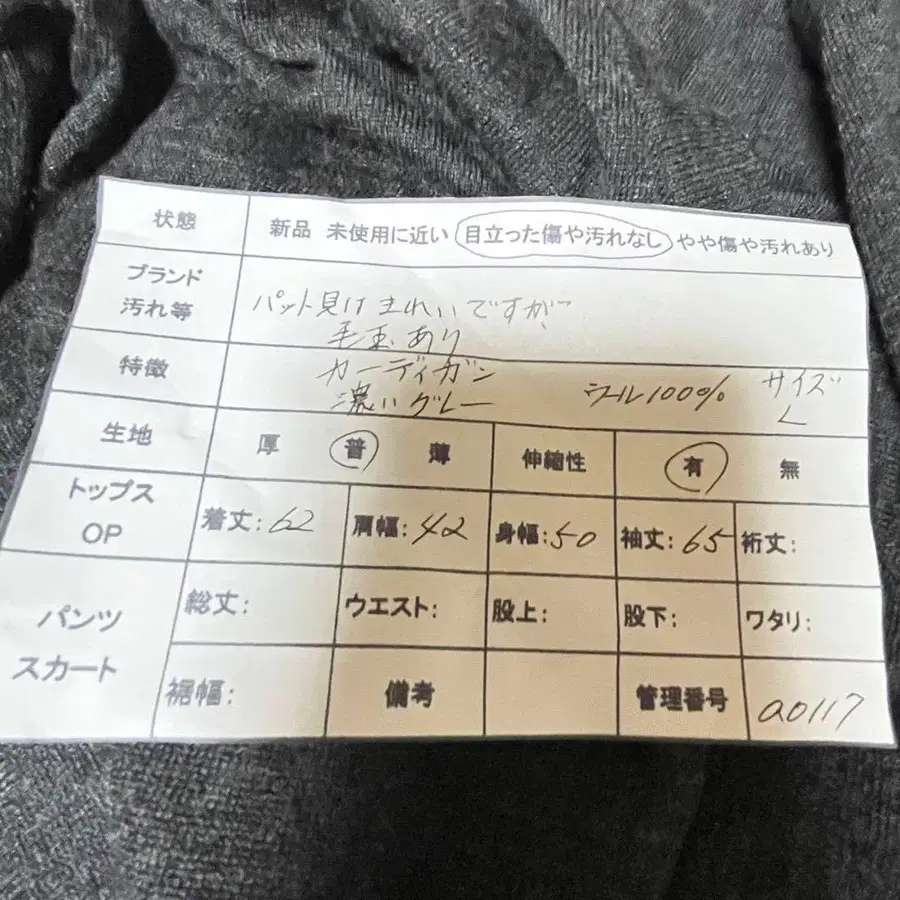 状態 新品 未使用に近い 目立った傷や汚れなし やや傷や汚れあり
ブランド
汚れ等
パット見はきれいですが、
毛玉あり
特徴
カーディガン
濃いグレー ウール100% サイズ
L
生地 厚 普 薄 伸縮性 有 無
トップス
OP
着丈:62 肩幅:42 身幅:50 袖丈:65 裄丈:
パンツ
スカート
総丈: ウエスト: 股上: 股下: ワタリ:
裾幅: 備考 管理番号 a0117